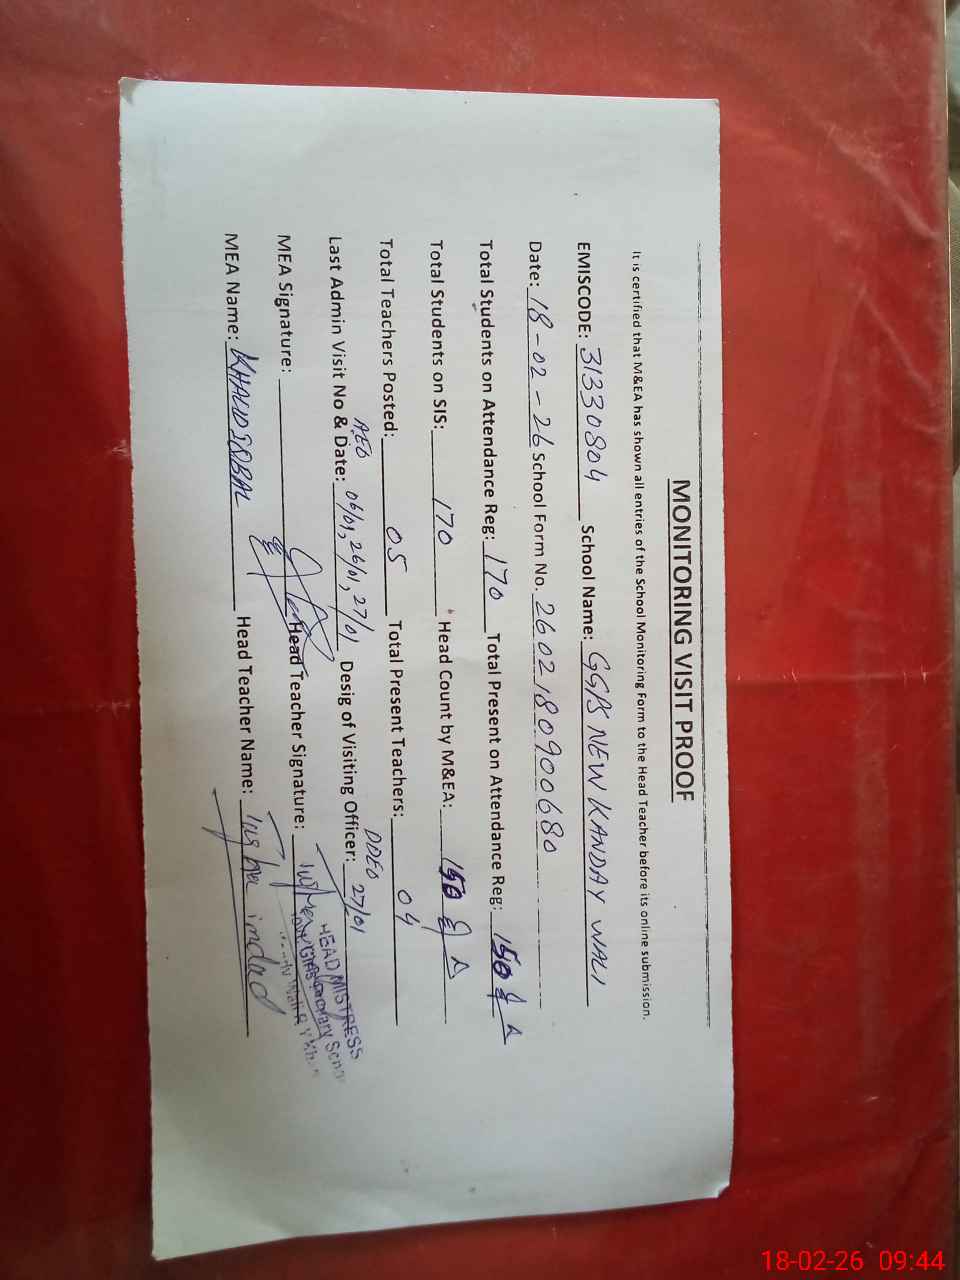 MONITORING VISIT PROOF
It is certified that M&EA has shown all entries of the School Monitoring Form to the Head Teacher before its online submission.
EMISCODE: 31330804 School Name: GGPS NEW KANDAY WALI
Date: 18-02-26 School Form No. 260218090068​0
Total Students on Attendance Reg: 170 Total Present on Attendance Reg: 150
Total Students on SIS: 170 Head Count by M&EA: 150
Total Teachers Posted: 05 Total Present Teachers: 04
AEO DDEO
Last Admin Visit No & Date: 06/01, 26/01, 27/01 Desig of Visiting Officer: 27/01
MEA Signature: Head Teacher Signature:
HEAD MISTRESS
MEA Name: KHALID IQBAL Head Teacher Name: imdad
18-02-26 09:44